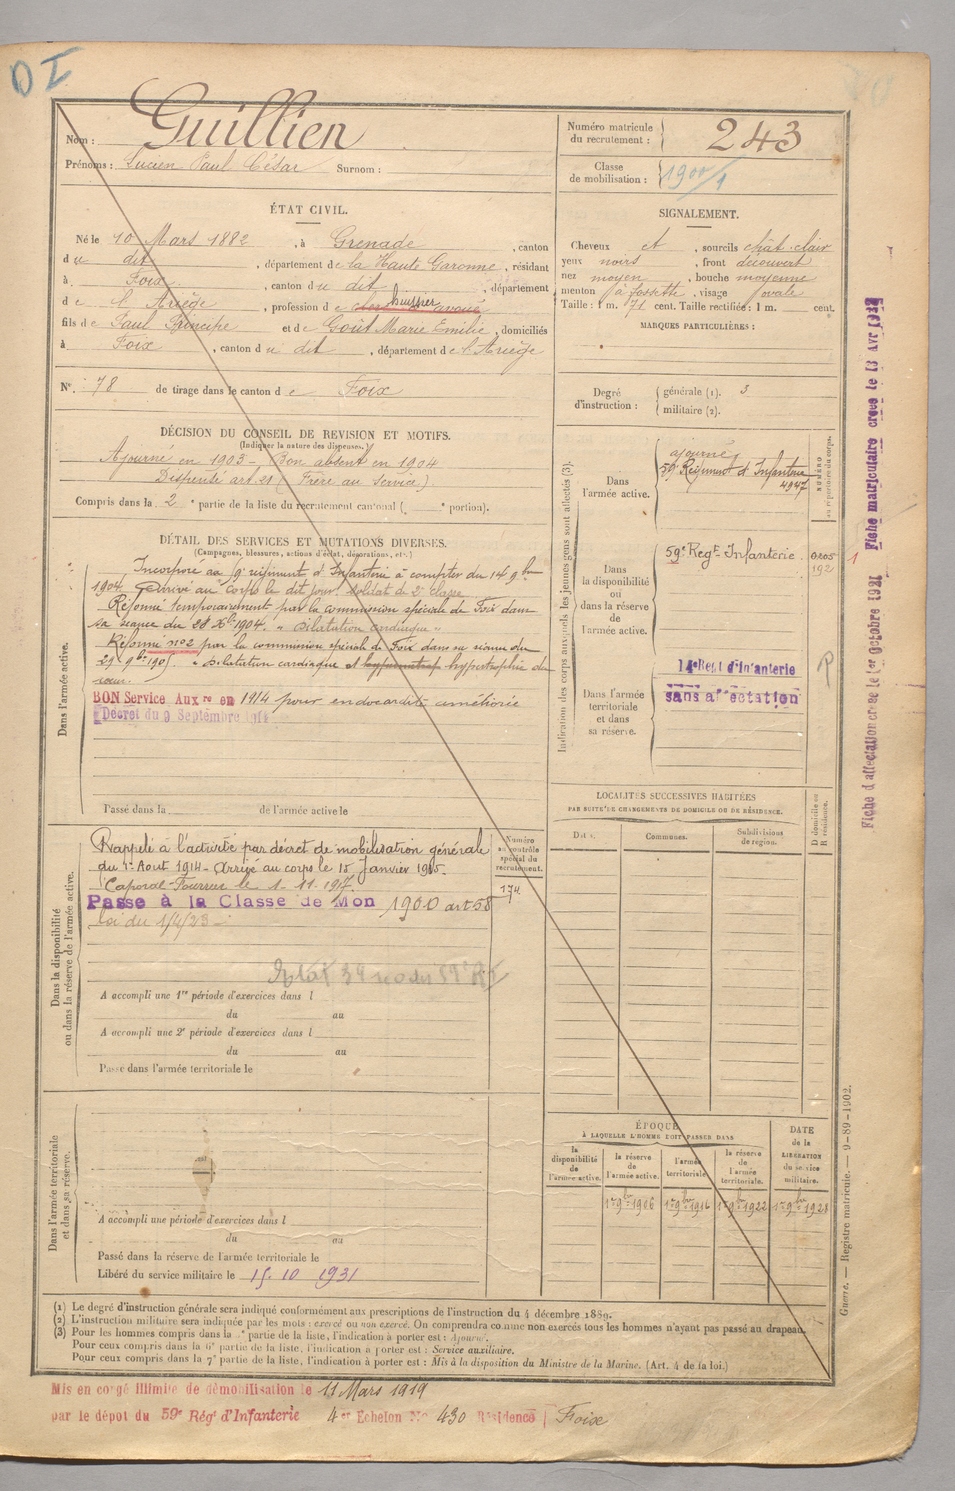 DI
Nom : Guillien
Prénoms : Lucien Paul César Surnom :
Numéro matricule du recrutement : 243
Classe de mobilisation : 1900/1
ÉTAT CIVIL.
Né le 10 Mars 1882, à Grenade, canton
du dit, département de la Haute Garonne, résidant
à Foix, canton du dit, département
de l'Ariège, profession de huissier
fils de Paul Principe et de Goût Marie Emilie, domiciliés
à Foix, canton du dit, département de l'Ariège
N° 78 de tirage dans le canton de Foix
SIGNALEMENT.
Cheveux et, sourcils chât. clair
yeux noirs, front découvert
nez moyen, bouche moyenne
menton à fossette, visage ovale
Taille : 1 m. 71 cent. Taille rectifiée : 1 m. cent.
MARQUES PARTICULIÈRES :
Degré d'instruction : générale (1). 3
militaire (2).
DÉCISION DU CONSEIL DE REVISION ET MOTIFS.
(Indiquer la nature des dispenses.)
Ajourné en 1903 - Bon absent en 1904
Dispensé art. 21 (Frère au Service)
Compris dans la 2e partie de la liste du recrutement cantonal ( e portion).
DÉTAIL DES SERVICES ET MUTATIONS DIVERSES.
(Campagnes, blessures, actions d'éclat, décorations, etc.)
Dans l'armée active.
Incorporé au 9e régiment d'Infanterie à compter du 14 9bre
1904. Arrivé au corps le dit jour, soldat de 2e classe
Réformé temporairement par la commission spéciale de Foix dans
sa séance du 28 Xbre 1904. "Dilatation cardiaque"
Réformé n°2 par la commission spéciale de Foix dans sa séance du
29 9bre 1905 "Dilatation cardiaque et hypertrophie du
cœur.
BON Service Auxre en 1914 pour endocardite améliorée
Décret du 9 Septembre 1914
Passé dans la de l'armée active le
Indication des corps auxquels les jeunes gens sont affectés (3).
NUMÉRO au répertoire du corps.
Dans l'armée active.
ajourné
59e Régiment d'Infanterie
4947
Dans la disponibilité ou dans la réserve de l'armée active.
59e Regt Infanterie
Dans l'armée territoriale et dans sa réserve.
14e Regt d'Infanterie
sans affectation
Fiche d'affectation créée le 1er Octobre 1921
Fiche matriculaire créée le 13 Avr
LOCALITÉS SUCCESSIVES HABITÉES
PAR SUITE DE CHANGEMENTS DE DOMICILE OU DE RÉSIDENCE.
Dates. Communes. Subdivisions de région. D domicile ou R résidence.
Dans la disponibilité ou dans la réserve de l'armée active.
Rappelé à l'activité par décret de mobilisation générale
du 1er Août 1914 - Arrivé au corps le 15 Janvier 1915.
Caporal-Fourrier le 1-11-1917.
Passé à la Classe de Mon 1900 art 58
loi du 1/4/23
Numéro au contrôle spécial du recrutement.
174
A accompli une 1re période d'exercices dans l
du au
A accompli une 2e période d'exercices dans l
du au
Passé dans l'armée territoriale le
Dans l'armée territoriale et dans sa réserve.
A accompli une période d'exercices dans l
du au
Passé dans la réserve de l'armée territoriale le
Libéré du service militaire le 15-10 1931
ÉPOQUE
À LAQUELLE L'HOMME DOIT PASSER DANS
la disponibilité de l'armée active. la réserve de l'armée active. l'armée territoriale. la réserve de l'armée territoriale.
DATE de la LIBÉRATION du service militaire.
1er 9bre 1906 1er 9bre 1916 1er 9bre 1922 1er 9bre 1928
Guerre. — Registre matricule. — 9-89-1902.
(1) Le degré d'instruction générale sera indiqué conformément aux prescriptions de l'instruction du 4 décembre 1889.
(2) L'instruction militaire sera indiquée par les mots : exercé ou non exercé. On comprendra comme non exercés tous les hommes n'ayant pas passé au drapeau.
(3) Pour les hommes compris dans la e partie de la liste, l'indication à porter est : Ajourné.
Pour ceux compris dans la 6e partie de la liste, l'indication à porter est : Service auxiliaire.
Pour ceux compris dans la 7e partie de la liste, l'indication à porter est : Mis à la disposition du Ministre de la Marine. (Art. 4 de la loi.)
Mis en congé illimité de démobilisation le 11 Mars 1919
par le dépôt du 59e Régt d'Infanterie 4er Echelon No 430 Résidence Foix